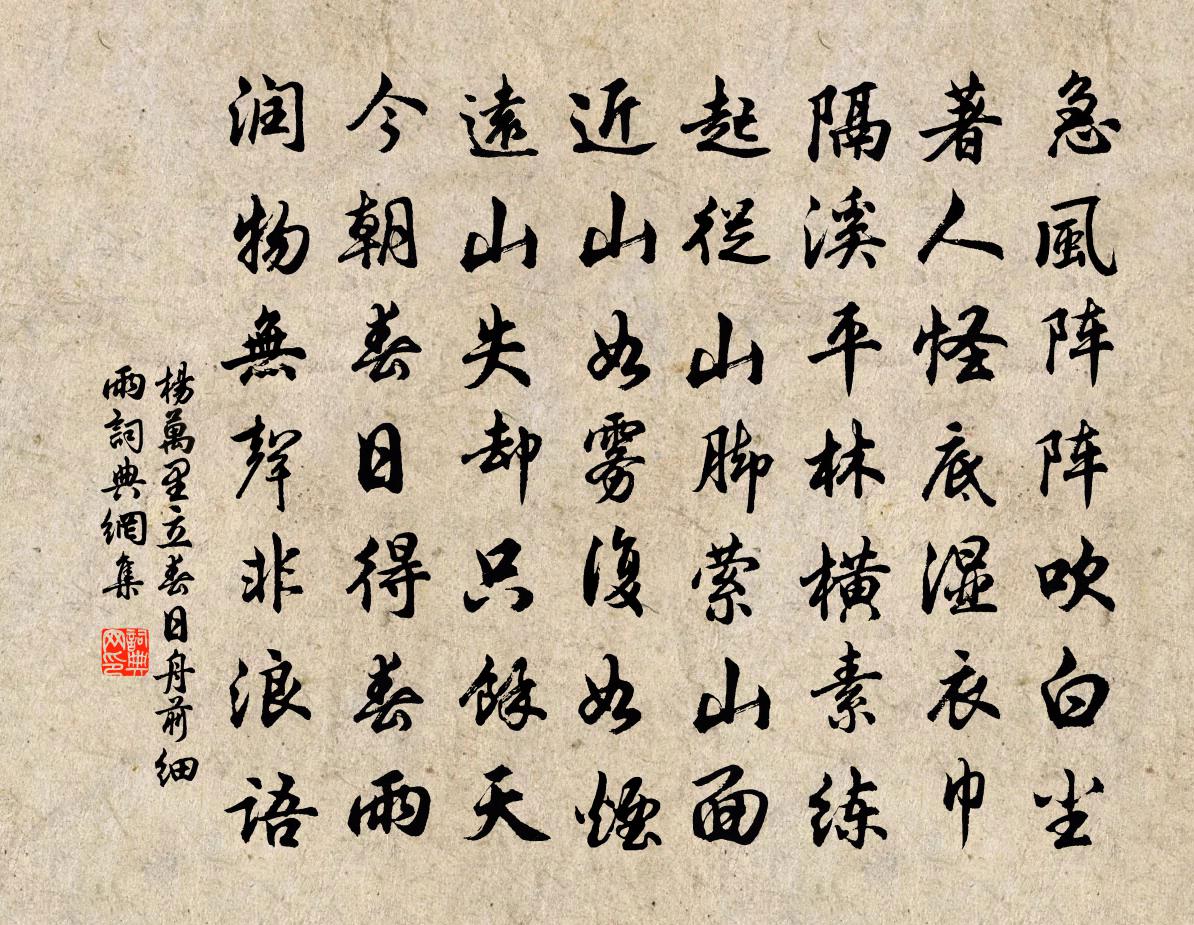 急風阵阵吹白尘
著人怪底湿衣巾
隔溪平林横素练
起從山脚萦山面
近山如雾復如煙
遠山失却只餘天
今朝春日得春雨
润物無聲非浪語
楊萬里立春日舟前细
雨詞典網集
詞典
网印